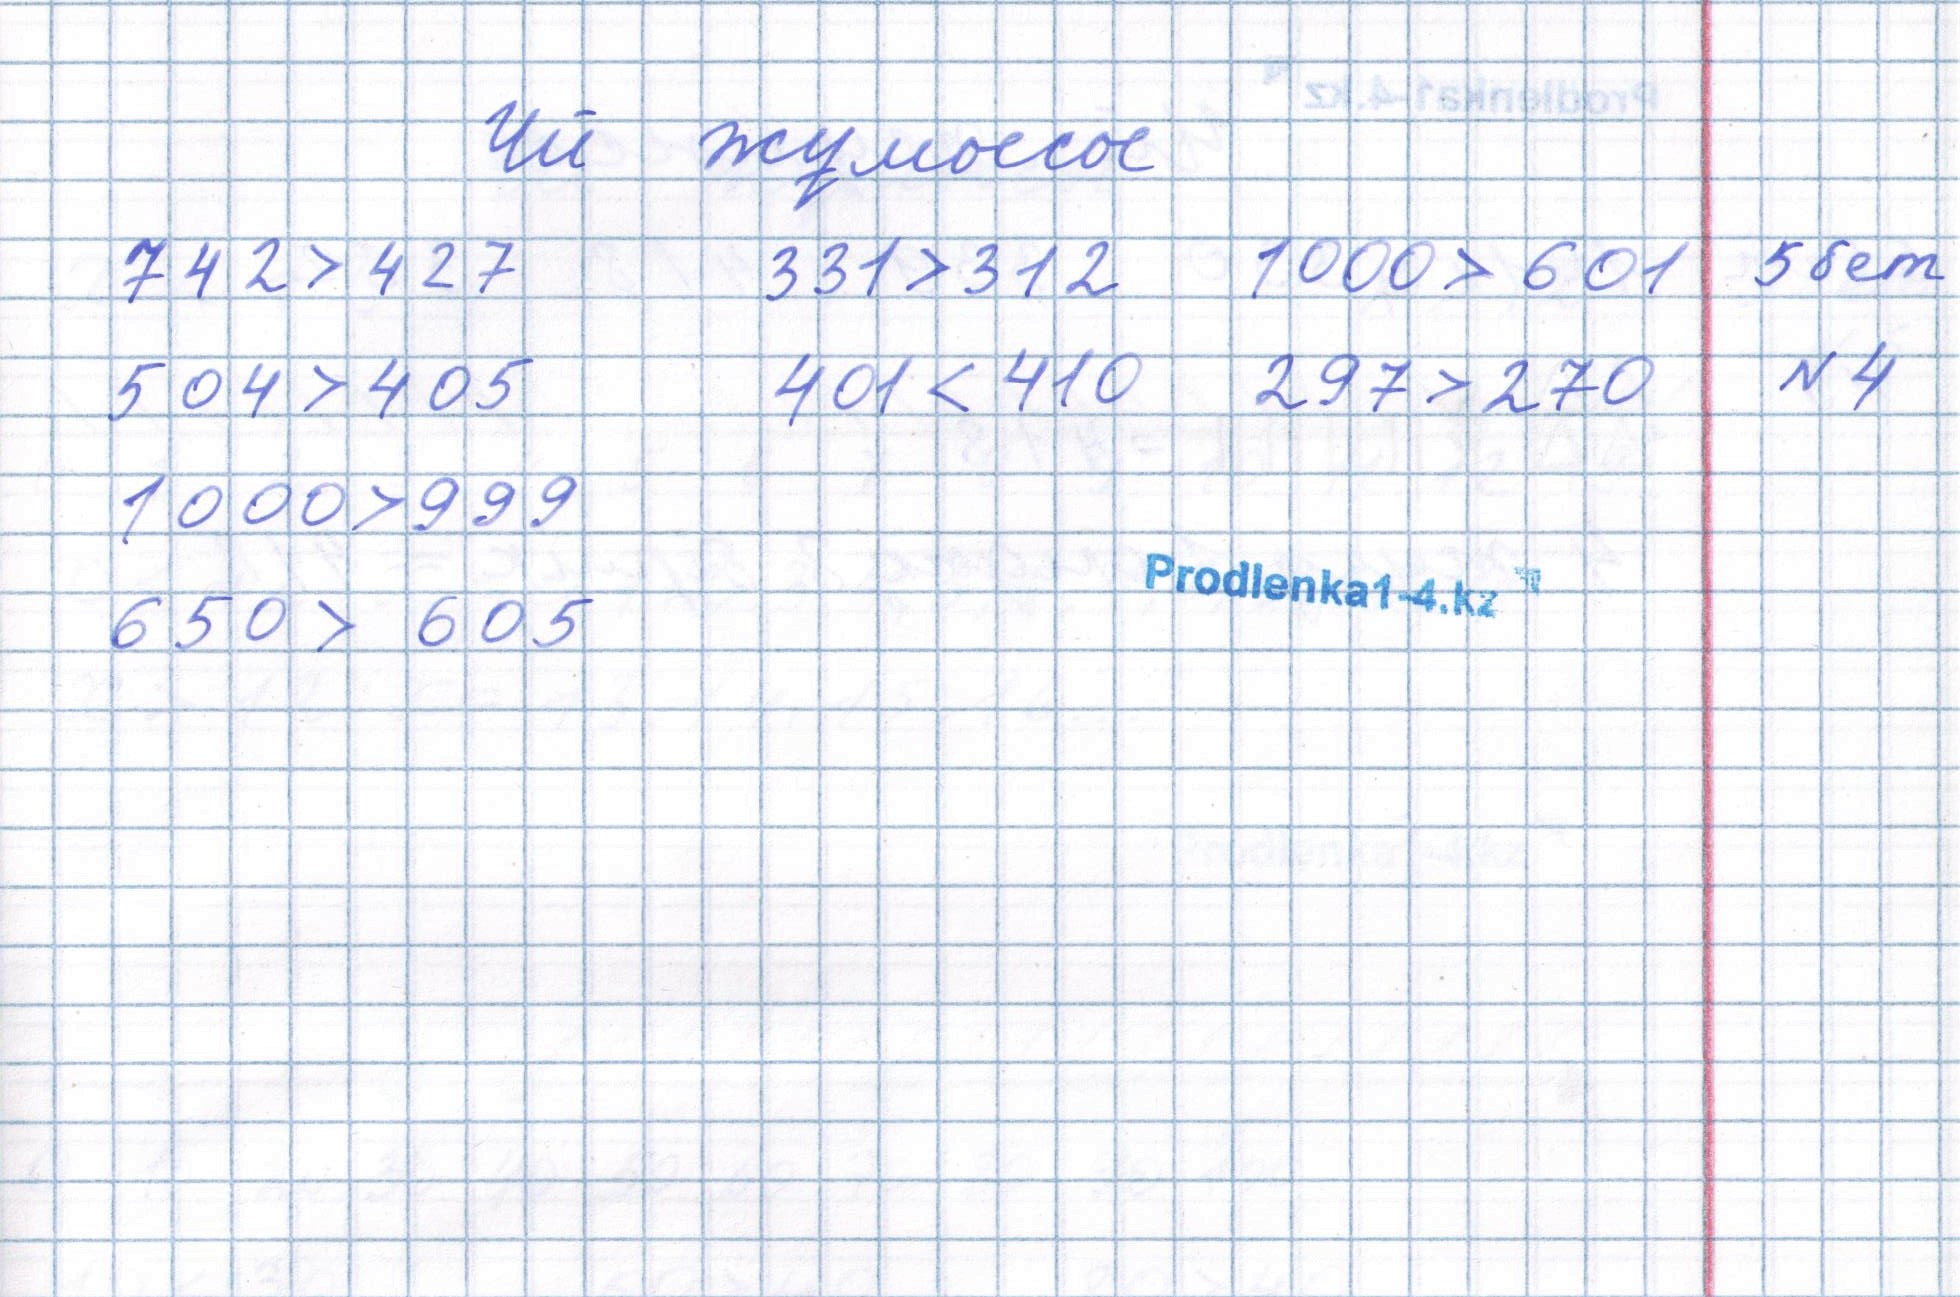 Үй жұмысы
742>427 331>312 1000>601 5 бет
504>405 401<410 297>270 №4
1000>999
650>605
Prodlenka1-4.kz